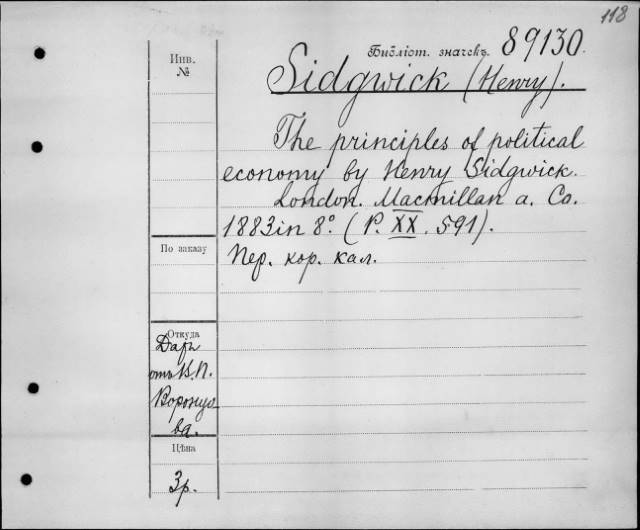 118
Библіот. значекъ. 89130.
Инв.
№
Sidgwick (Henry).
The principles of political
economy by Henry Sidgwick.
London. Macmillan a. Co.
1883 in 8º. (P. XX. 591).
По заказу
Пер. кор. кал.
Откуда
Даръ
отъ В.П.
Воронцо
ва.
Цѣна
3р.